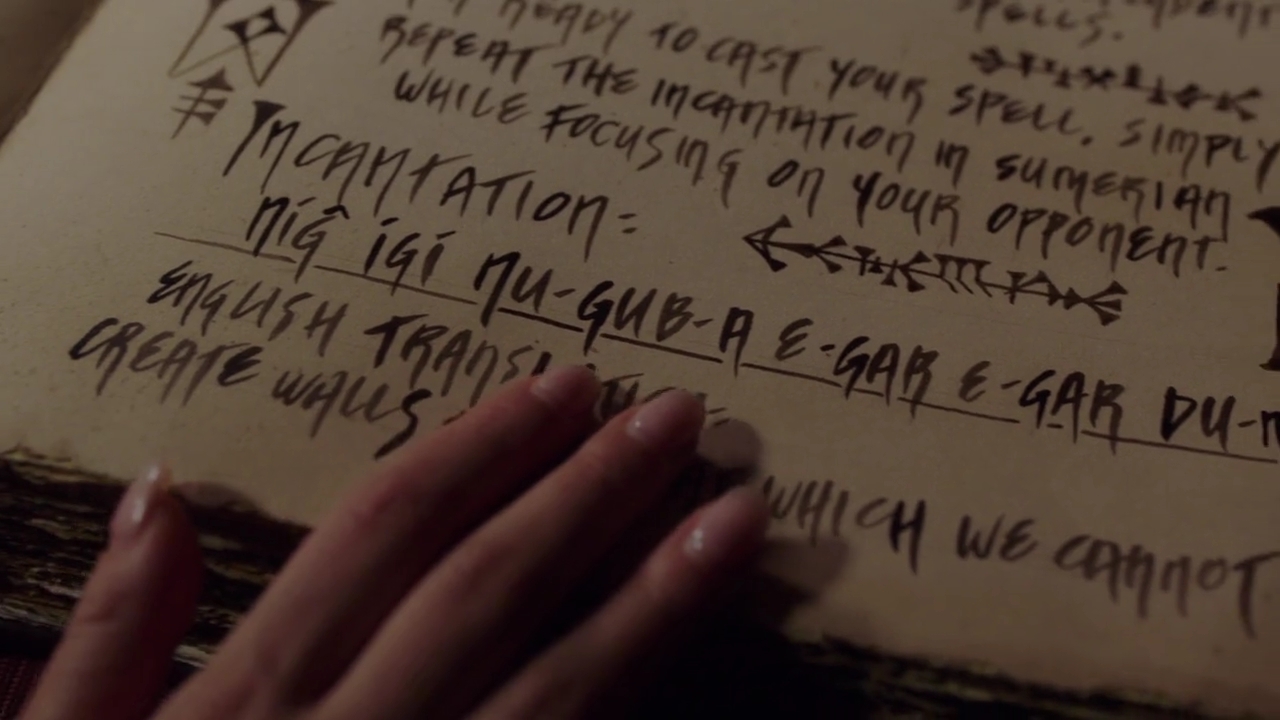 READY TO CAST YOUR SPELL, SIMPLY
SPELLS.
REPEAT THE INCANTATION IN SUMERIAN
WHILE FOCUSING ON YOUR OPPONENT.
INCANTATION:
níĝ igi nu-GUB-A E-GAR E-GAR DU-
ENGLISH
CREATE WALLS WHICH WE CANNOT